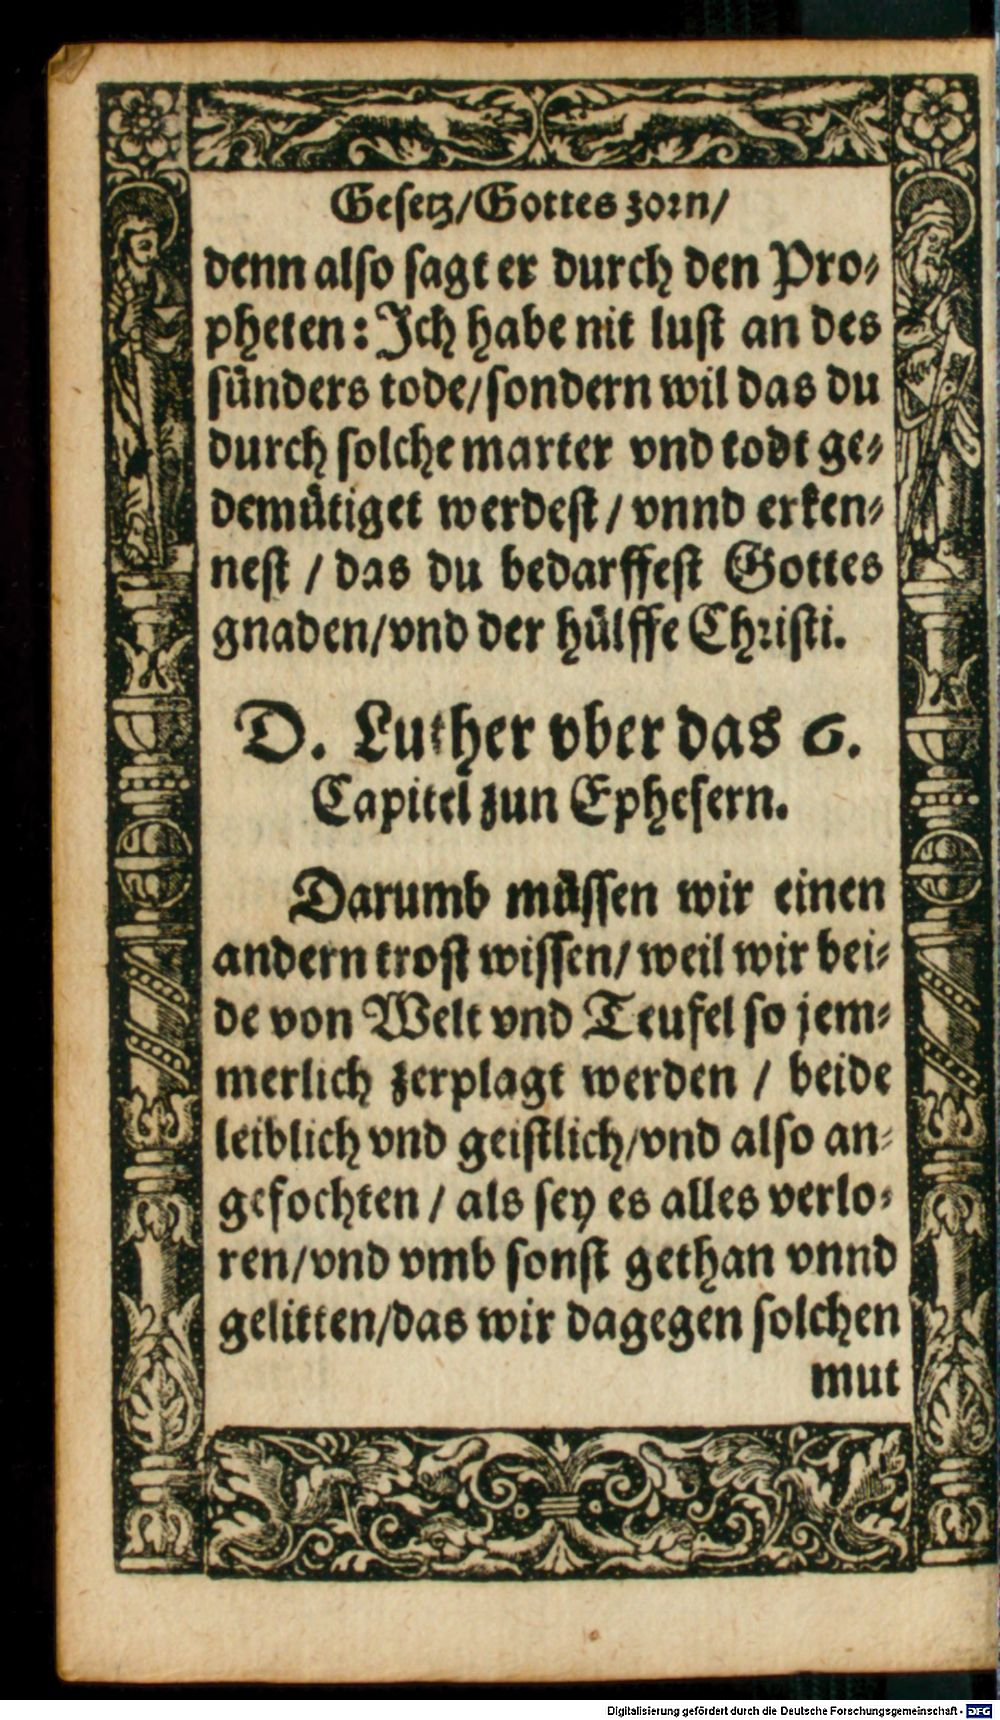 Gesetz/Gottes zorn/
denn also sagt er durch den Pro-
pheten: Ich habe nit lust an des
sünders tode/sondern wil das du
durch solche marter vnd todt ge-
demütiget werdest / vnnd erken-
nest / das du bedarffest Gottes
gnaden/vnd der hülffe Christi.
D. Luther vber das 6.
Capitel zun Ephesern.
Darumb müssen wir einen
andern trost wissen/weil wir bei-
de von Welt vnd Teufel so jem-
merlich zerplagt werden / beide
leiblich vnd geistlich/vnd also an-
gefochten / als sey es alles verlo-
ren/vnd vmb sonst gethan vnnd
gelitten/das wir dagegen solchen
mut
Digitalisierung gefördert durch die Deutsche Forschungsgemeinschaft - DFG